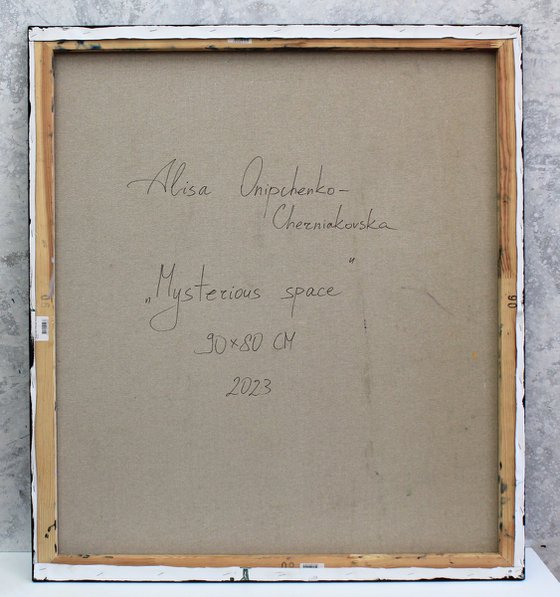 Alisa Onipchenko-
Cherniakovska
„Mysterious space"
90×80 CM
2023
90